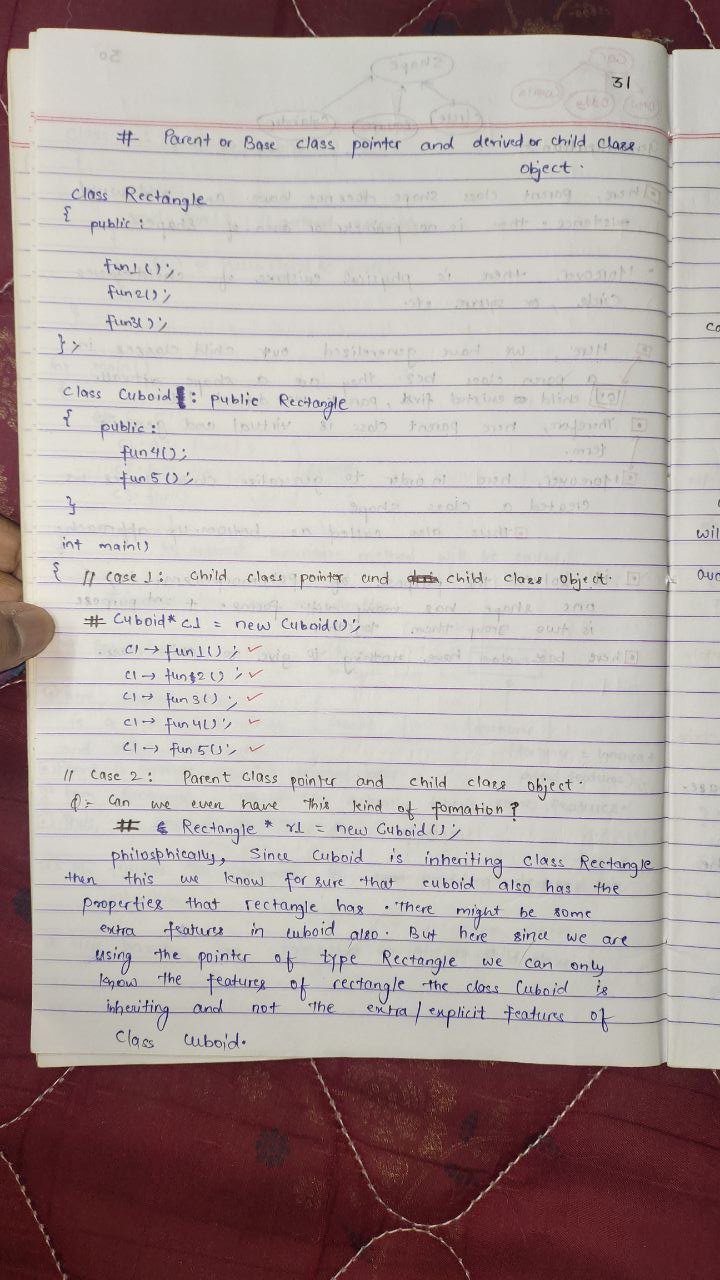 31
# Parent or Base class pointer and derived or child class
object.
class Rectangle
{ public :
fun1();
fun2();
fun3();
};
class Cuboid : public Rectangle
{ public :
fun4();
fun5();
}
int main()
{ // case 1: child class pointer and child class object.
# Cuboid* c1 = new Cuboid();
c1 → fun1(); ✓
c1 → fun2(); ✓
c1 → fun3(); ✓
c1 → fun4(); ✓
c1 → fun5(); ✓
// Case 2: Parent class pointer and child class object.
Q:- Can we even have this kind of formation?
# Rectangle * r1 = new Cuboid();
philosphically, Since Cuboid is inheriting class Rectangle
then this we know for sure that cuboid also has the
properties that rectangle has. There might be some
extra features in cuboid also. But here since we are
using the pointer of type Rectangle we can only
know the features of rectangle the class Cuboid is
inheriting and not the extra/explicit features of
Class Cuboid.
wil